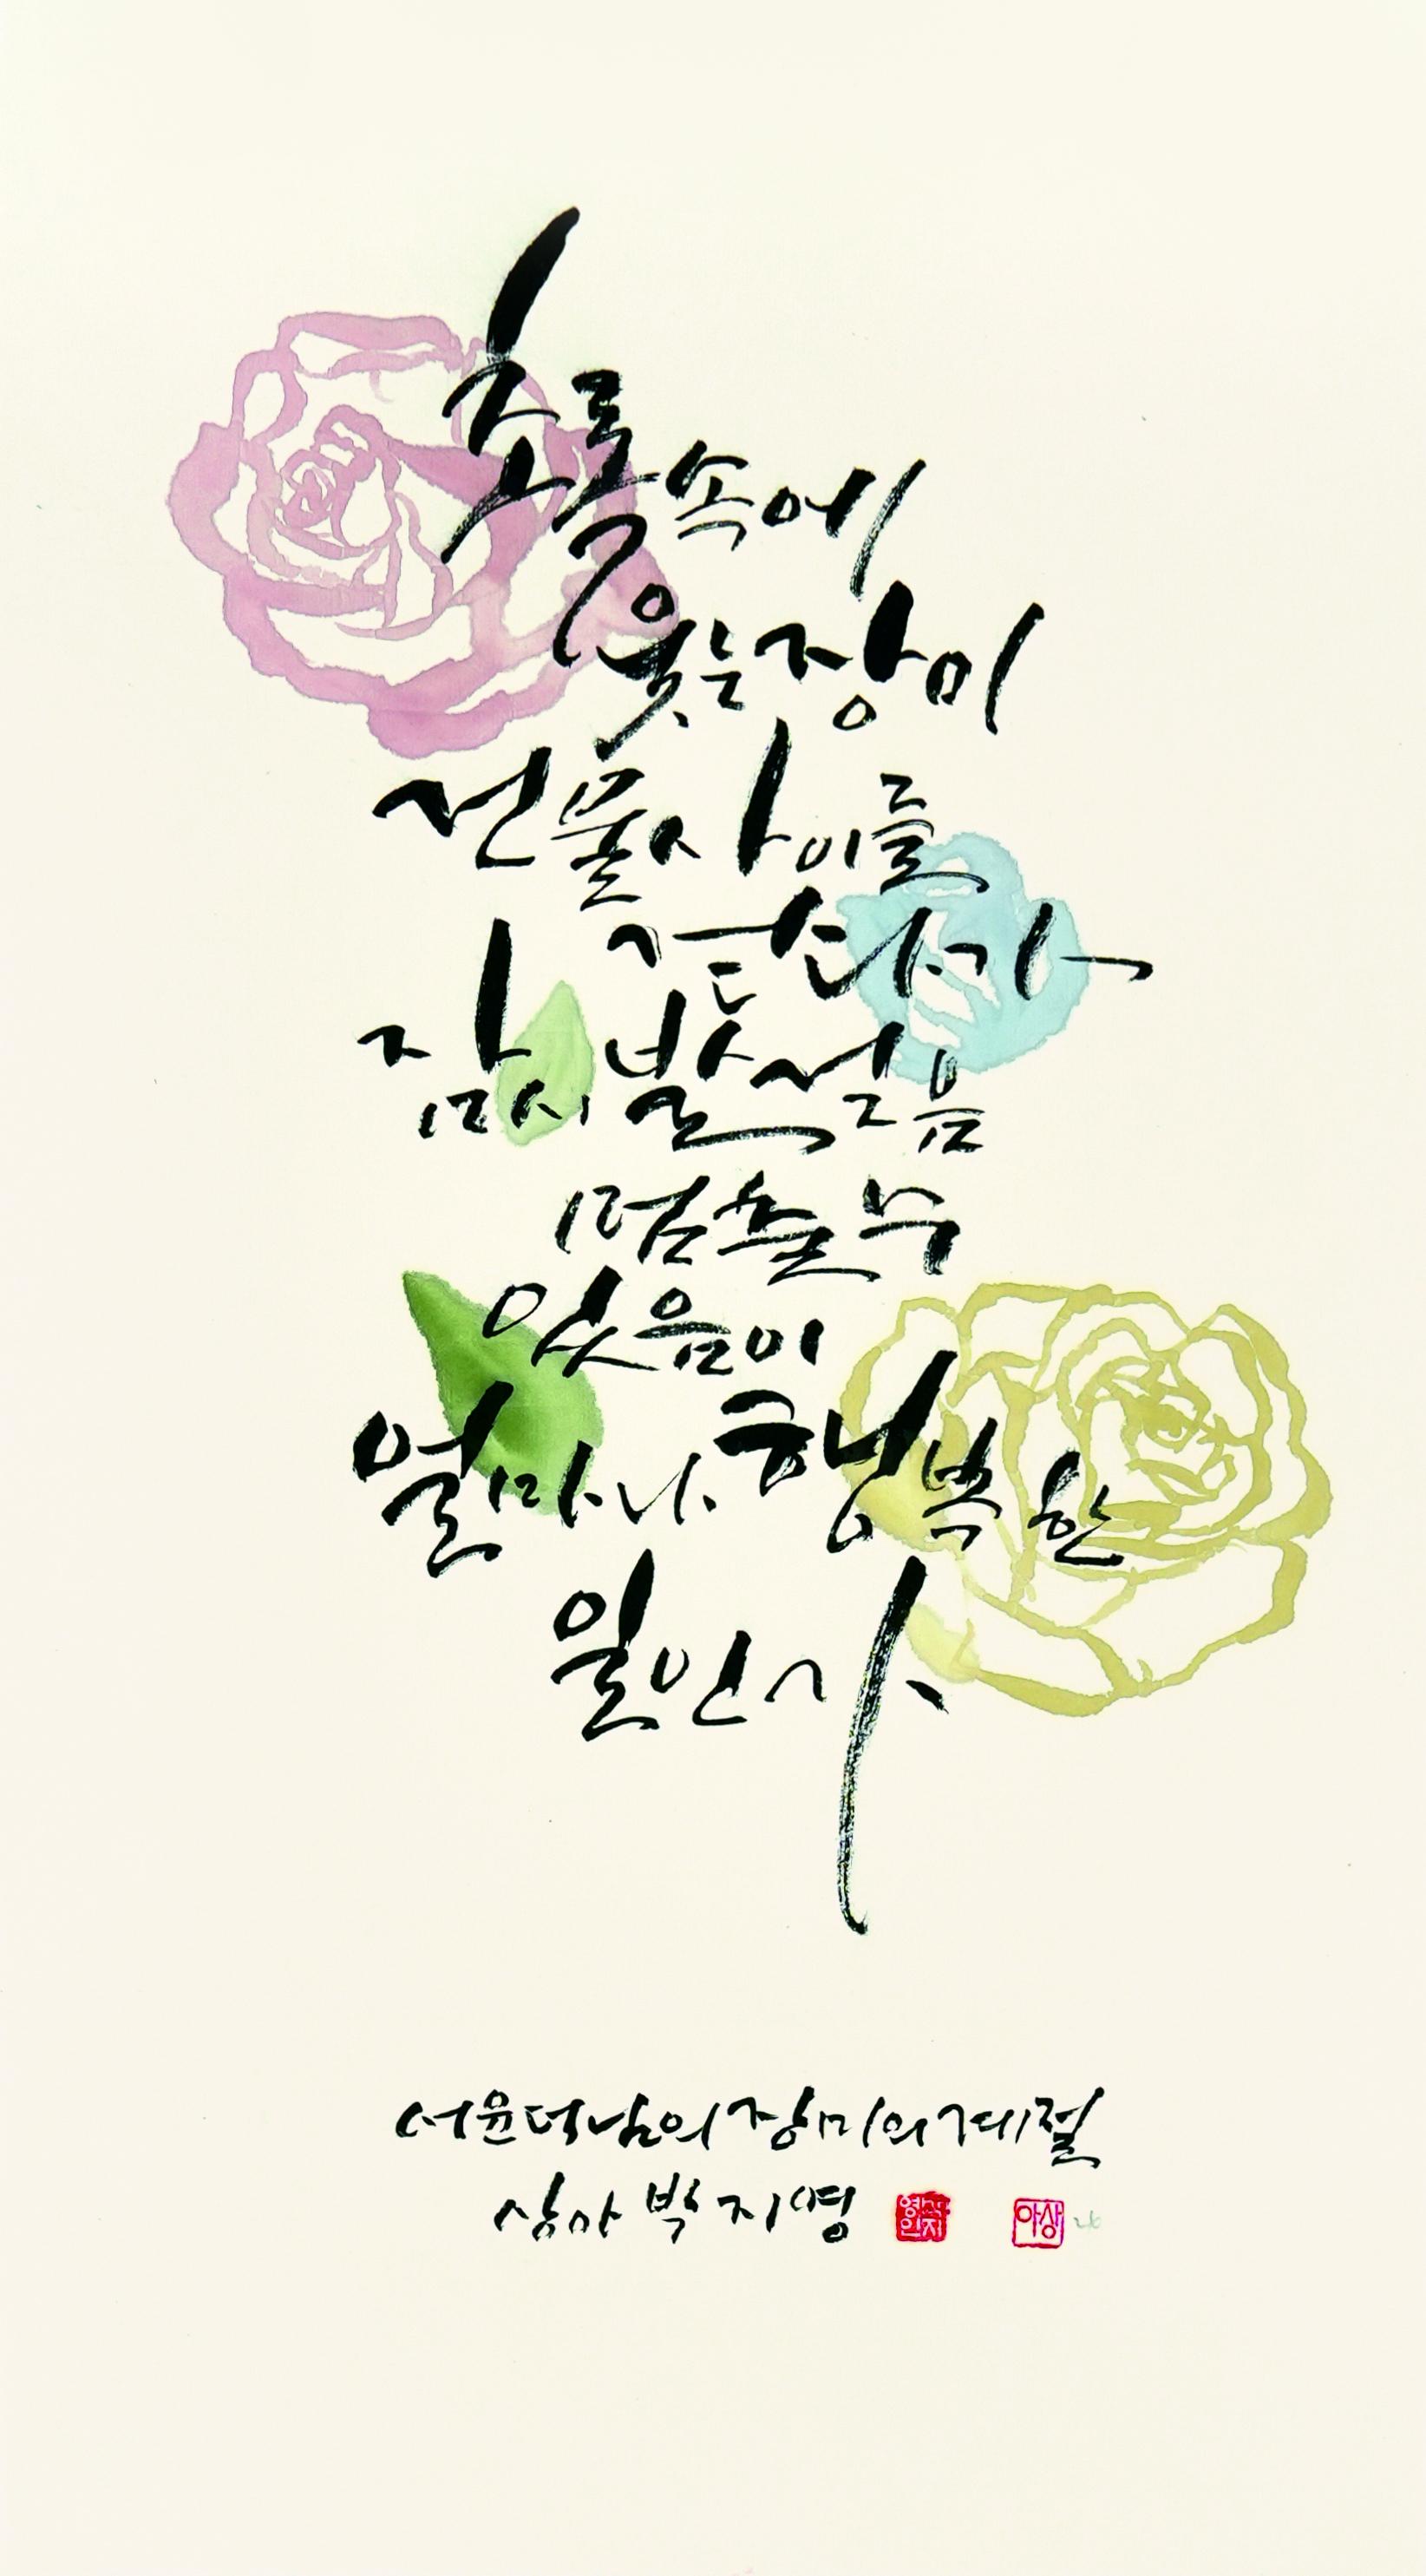 초록 속에
웃는 장미
건물 사이를
걷다가
잠시 발걸음
멈출 수
있음이
얼마나 행복한
일인가
서윤덕님의 장미의 계절
상아 박지영